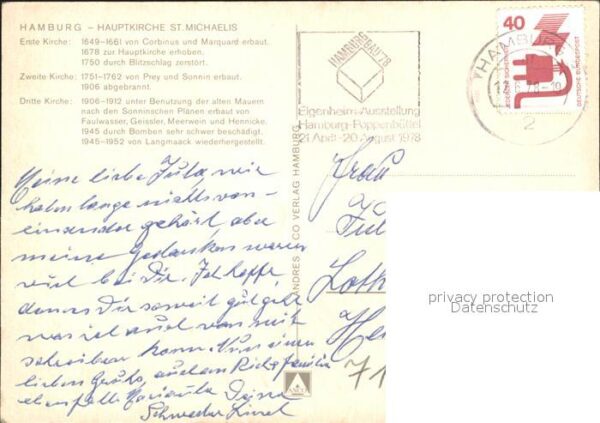 HAMBURG – HAUPTKIRCHE ST. MICHAELIS
Erste Kirche: 1649–1661 von Corbinus und Marquard erbaut.
1678 zur Hauptkirche erhoben.
1750 durch Blitzschlag zerstört.
Zweite Kirche: 1751–1762 von Prey und Sonnin erbaut.
1906 abgebrannt.
Dritte Kirche: 1906–1912 unter Benutzung der alten Mauern
nach den Sonninschen Plänen erbaut von
Faulwasser, Geissler, Meerwein und Hennicke.
1945 durch Bomben sehr schwer beschädigt.
1945–1952 von Langmaack wiederhergestellt.
Meine liebe Jula, wir
haben lange nichts von-
einander gehört, aber
meine Gedanken waren
viel bei Dir. Ich hoffe,
dass es Dir soweit gut geht
was ich auch von mir
schreiben kann. Nun einen
lieben Gruß, auch an
ebenfalls Deine
Schwester
ANDRES + CO VERLAG HAMBURG
HAMBURGBAU 78
Eigenheim-Ausstellung
Hamburg-Poppenbüttel
21. April - 20. August 1978
HAMBURG
2
40
JEDERZEIT SICHERHEIT
DEUTSCHE BUNDESPOST
Frau
Loth
71
privacy protection
Datenschutz